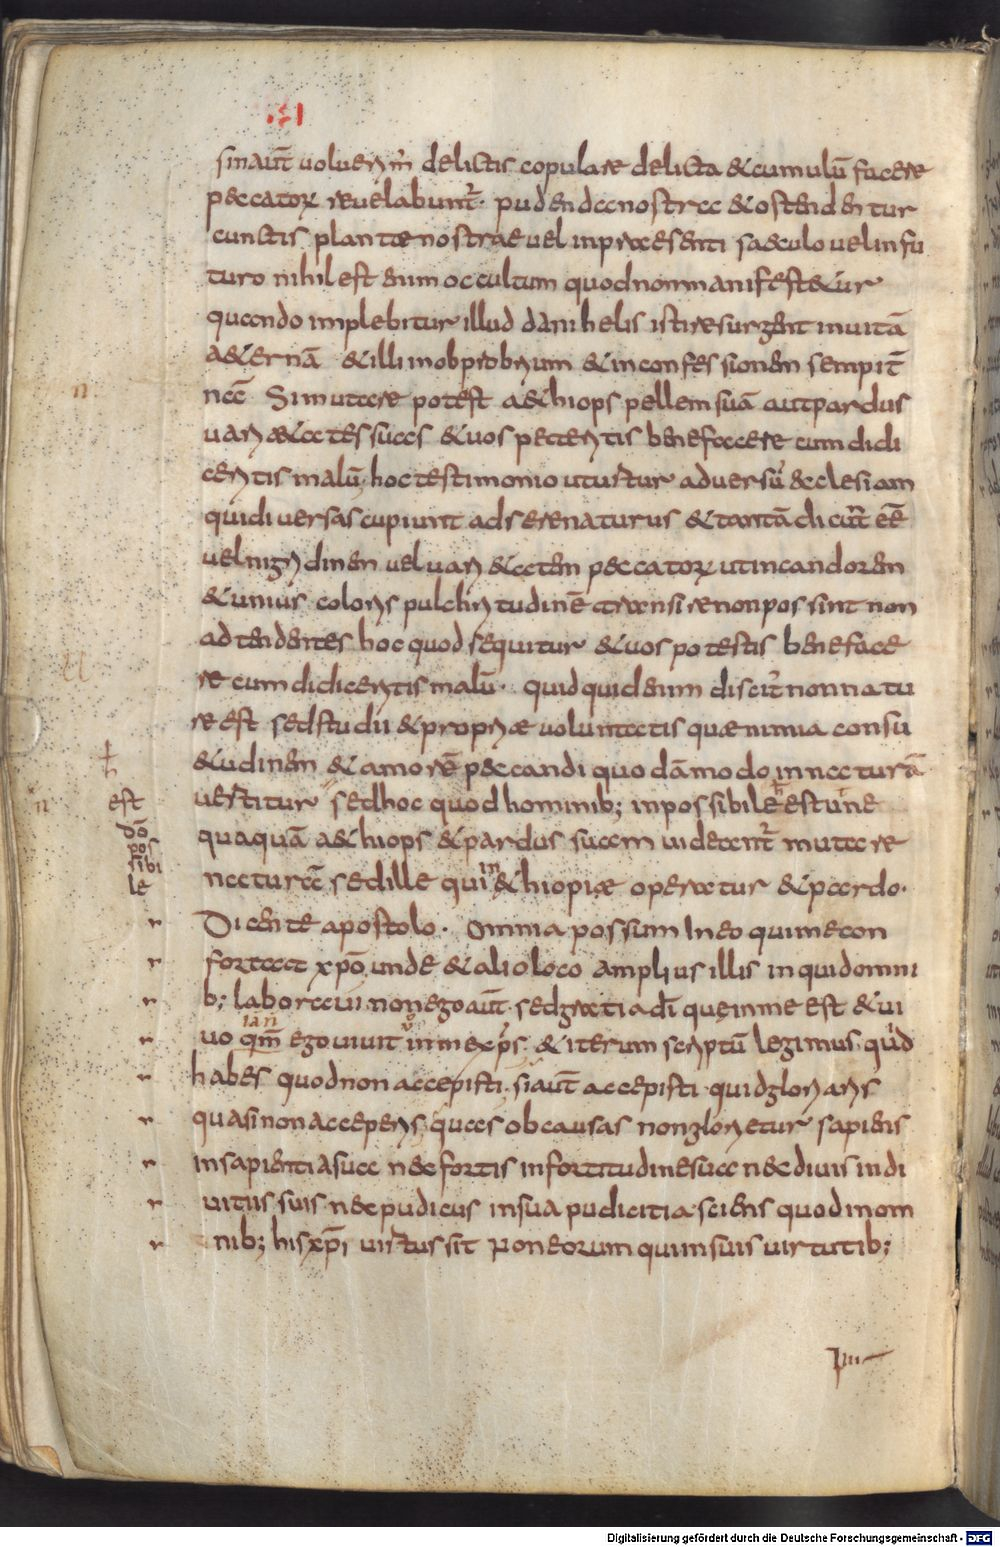 sinaut̄ uoluerim̄ delictis copulare delicta &cumulū facere
peccatoꝝ reuelabunt᷑· pudendaenostrae &ostendentur
cunctis plantaenostrae uel inpraesenti saeculo uelinfu
turo nihilest enim occultum quodnonmanifest&ur
quando implebitur illud danihelis istiresurgent inuitā
a&ernā &illi inobprobrium &inconfessionem sempit̄
nā Simutare potest a&hiops pellemsuā autpardus
uari&atessuas &uos poteritis benefacere cumdidi
ceritis malū, hoctestimonio utuntur aduersū ecclesiam
quidiuersascupiunt adserenaturas &tantā dicūt eē
uelnigridinem uel uari&atem peccatoꝝ utincandorem
&unius coloris pulchritudinē transirenonpossint non
adtendentes hoc quodsequitur &uos potestis beneface
re cumdidiceritis malū· quidquidenim discit᷑ nonnatu
re est sedstudii &propriae uoluntatis quaenimia consu
&udinem &amorē peccandi quodāmodo innaturā
uertitur sedhoc quodhominib; inpossibileestune
quaquā a&hiops &pardus suam uidetent᷑ mutare
naturā sedille quiin&hiopiae operatur &pardo·
Dicente apostolo· omnia possum Ineo quimecon
fortat xpō unde &alioloco amplius illis inquidomni
b; laboraui nonegoaut̄ sedgratiadī quęinme est &ui
uo iāñ qm̄ egouiuit u᷑o inmexp̄s &iterum scriptū legimus quid
habes quodnonaccepisti siaut̄ accepisti quidgloriaris
quasinonacceperis quas obcausas nongloriętur sapiens
insapientiasua necfortis infortitudinesua necdiuis indi
uitiis suis necpudicus insua pudicitia sciens quodinom
nib; hisxp̄i uirtussit noneorum quiinsuis uirtutib;
n
est
dō
pos
sibi
le